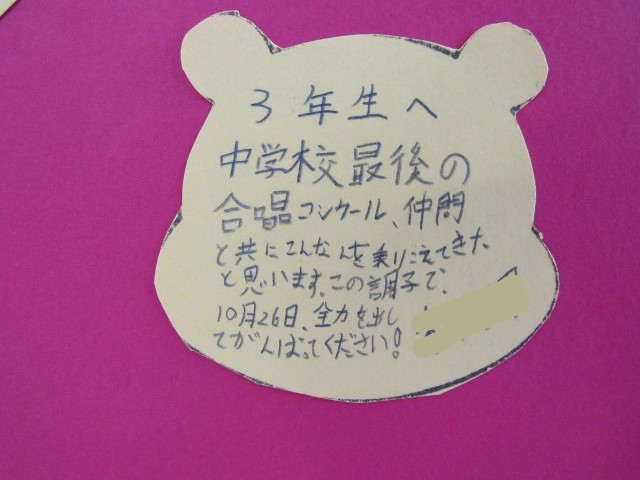 3年生へ
中学校最後の
合唱コンクール、仲間
と共にこんなんを乗りこえてきた
と思います。この調子で、
10月26日、全力を出し
てがんばってください!